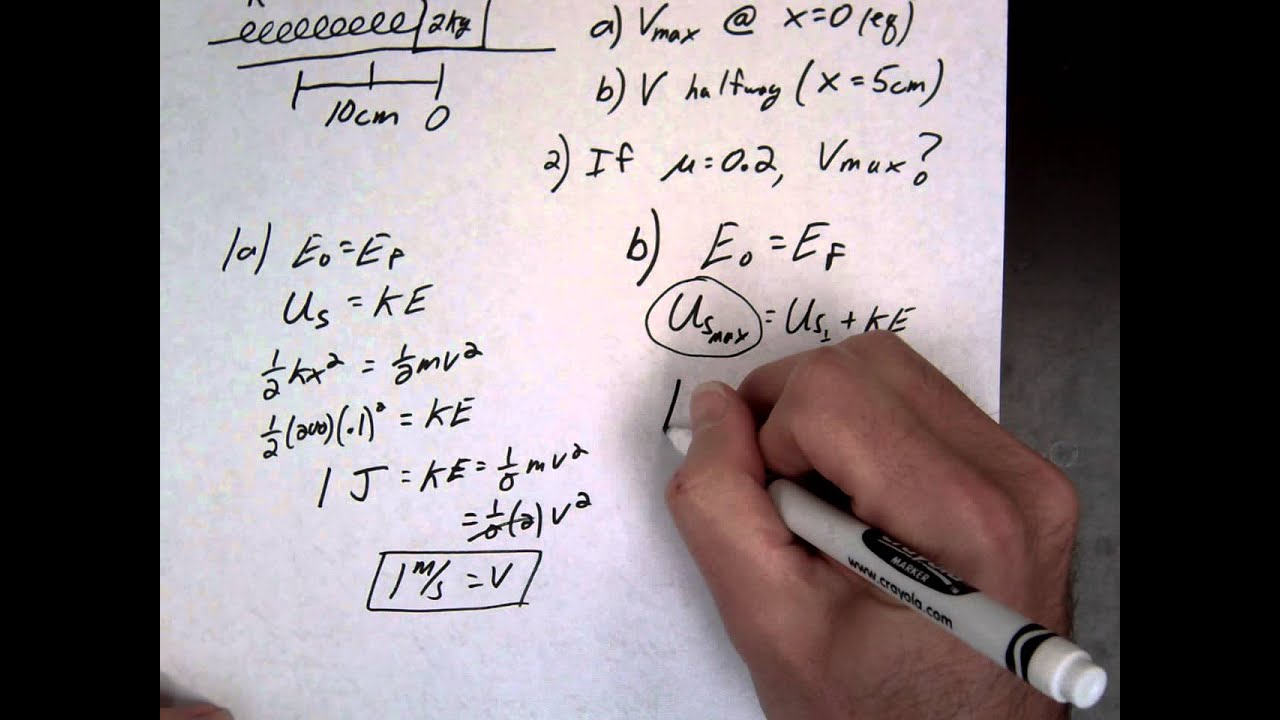 2kg
10cm 0
a) Vmax @ x=0 (eq)
b) V halfway (x=5cm)
2) If μ=0.2, Vmax?
1a) E₀=EF
Us = KE
½kx² = ½mv²
½(200)(.1)² = KE
1 J = KE = ½mv²
= ½(2)v²
1 m/s = V
b) E₀ = EF
Usmax = Us½ + KE
MARKER
www.crayola.com